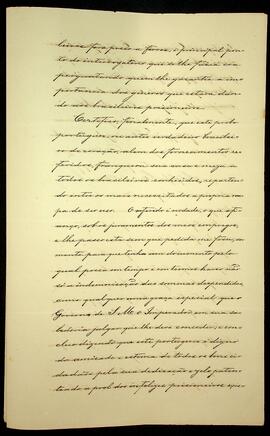 livras fora preso a ferros, o principal pon-
to do interrogatorio que se lhe fizera era
perguntando quem lhe garantia a im-
portancia dos generos que estava dan-
do aos brasileiros prisioneiros.
Certifico, finalmente, que este probo
portuguez, ou antes verdadeiro brasilei-
ro de coração, alem dos fornecimentos re-
feridos, franqueou sua casa e mesa a
todos os brasileiros conhecidos, repartin-
do entre os mais necessitados a propria rou-
pa de seu uso. O referido é verdade, o que affi-
anço, sob o juramento dos meus empregos,
e lhe passo esta sem que pedida me fosse, so-
mente para que tenha um documento pelo
qual possa em tempo e em termos haver não
só a indemnisação das sommas despendidas,
como qualquer uma graça especial que o
Governo de S. M. o Imperador em sua sa-
bedoria julgar que lhe deve conceder; e con-
cluo dizendo que este portuguez é digno
da amizade e estima de todos os bons ci-
dadãos pela sua dedicação e zelo paten-
teado a prol dos infelizes prisioneiros que